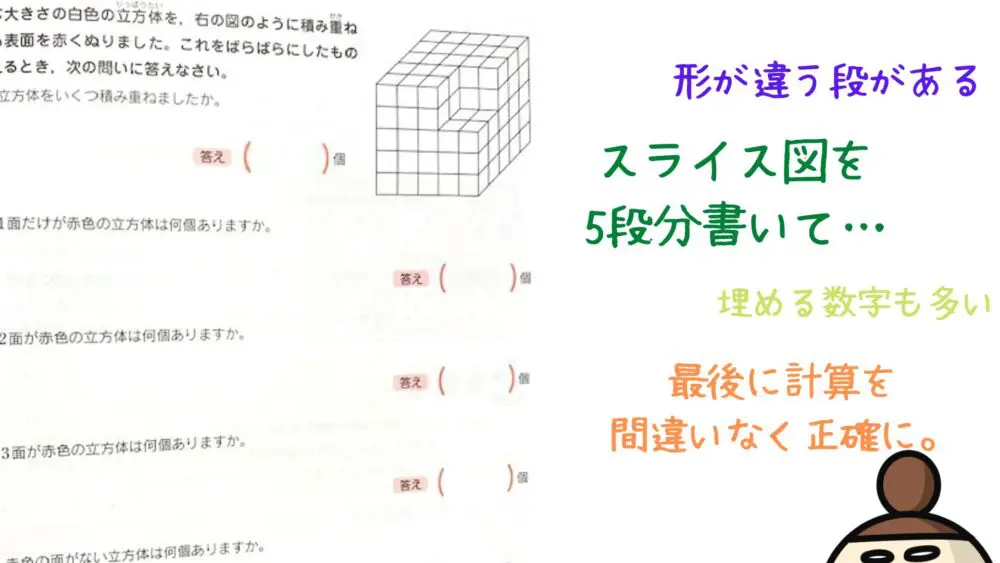 大きさの白色の立方体を，右の図のように積み重ね
表面を赤くぬりました。これをばらばらにしたもの
るとき，次の問いに答えなさい。
立方体をいくつ積み重ねましたか。
答え（　　）個
1面だけが赤色の立方体は何個ありますか。
答え（　　）個
2面が赤色の立方体は何個ありますか。
答え（　　）個
3面が赤色の立方体は何個ありますか。
答え（　　）個
赤色の面がない立方体は何個ありますか。
形が違う段がある
スライス図を
5段分書いて…
埋める数字も多い
最後に計算を
間違いなく正確に。